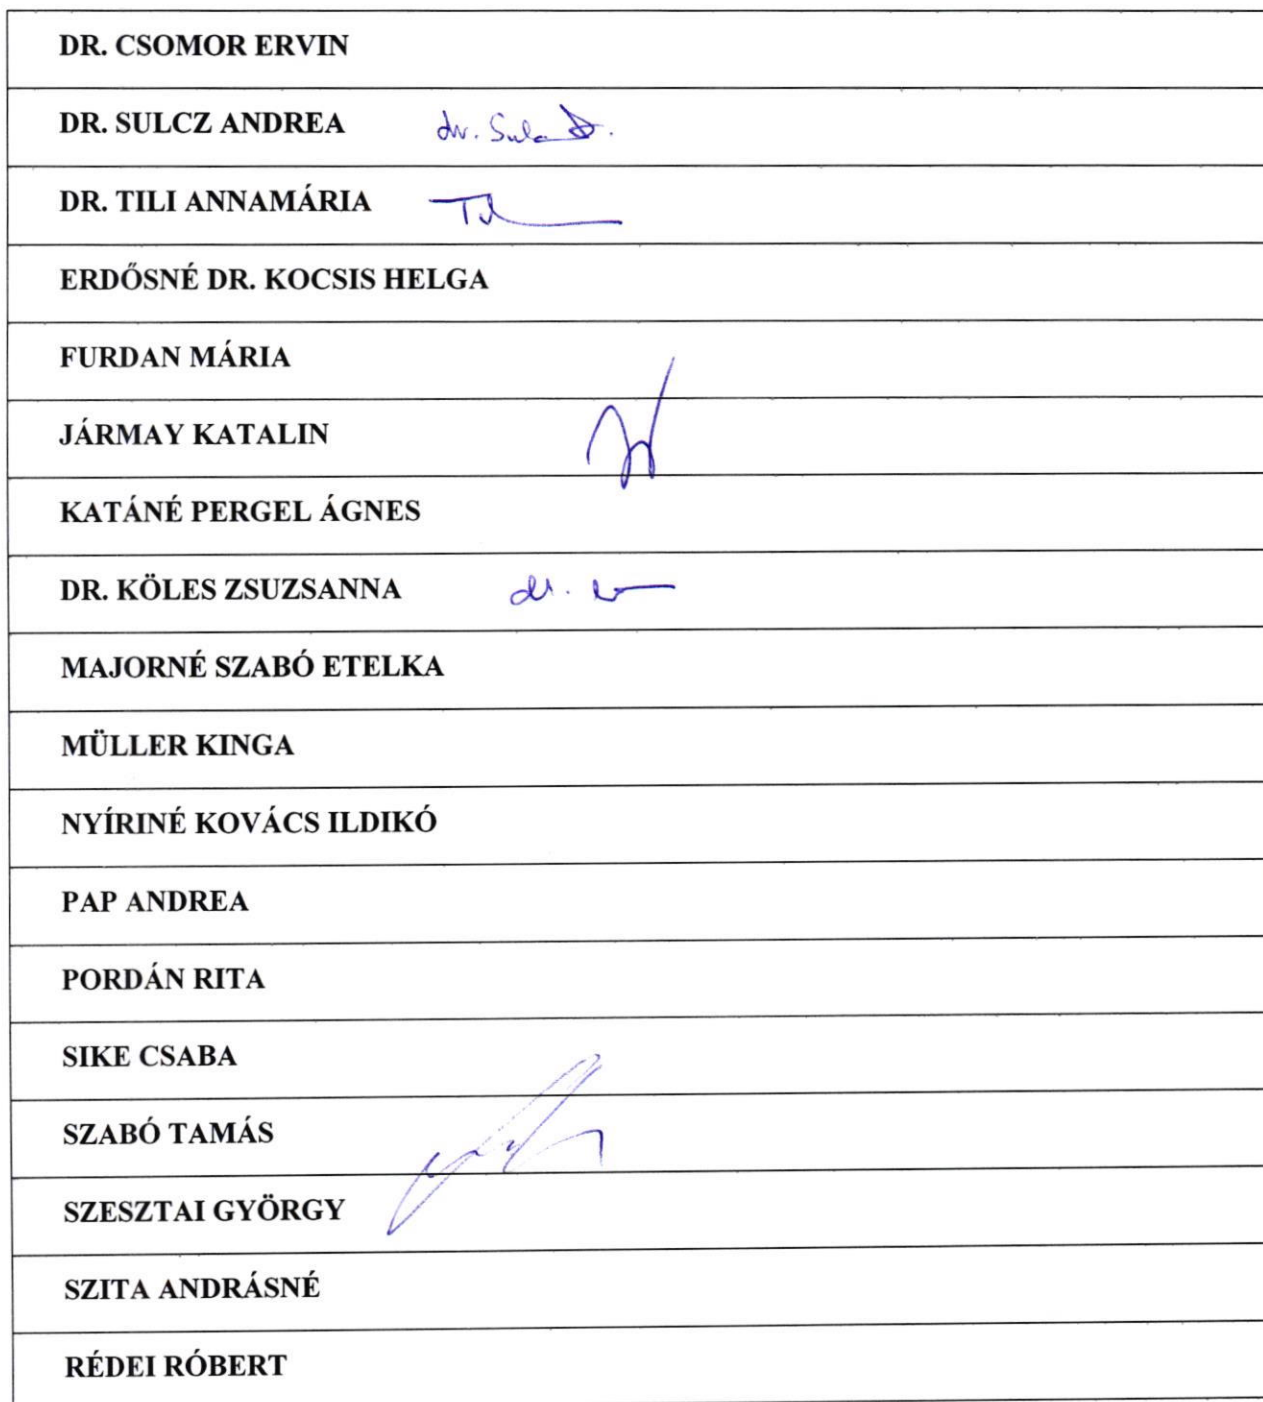 DR. CSOMOR ERVIN
DR. SULCZ ANDREA dr.
DR. TILI ANNAMÁRIA
ERDŐSNÉ DR. KOCSIS HELGA
FURDAN MÁRIA
JÁRMAY KATALIN
KATÁNÉ PERGEL ÁGNES
DR. KÖLES ZSUZSANNA dr.
MAJORNÉ SZABÓ ETELKA
MÜLLER KINGA
NYÍRINÉ KOVÁCS ILDIKÓ
PAP ANDREA
PORDÁN RITA
SIKE CSABA
SZABÓ TAMÁS
SZESZTAI GYÖRGY
SZITA ANDRÁSNÉ
RÉDEI RÓBERT